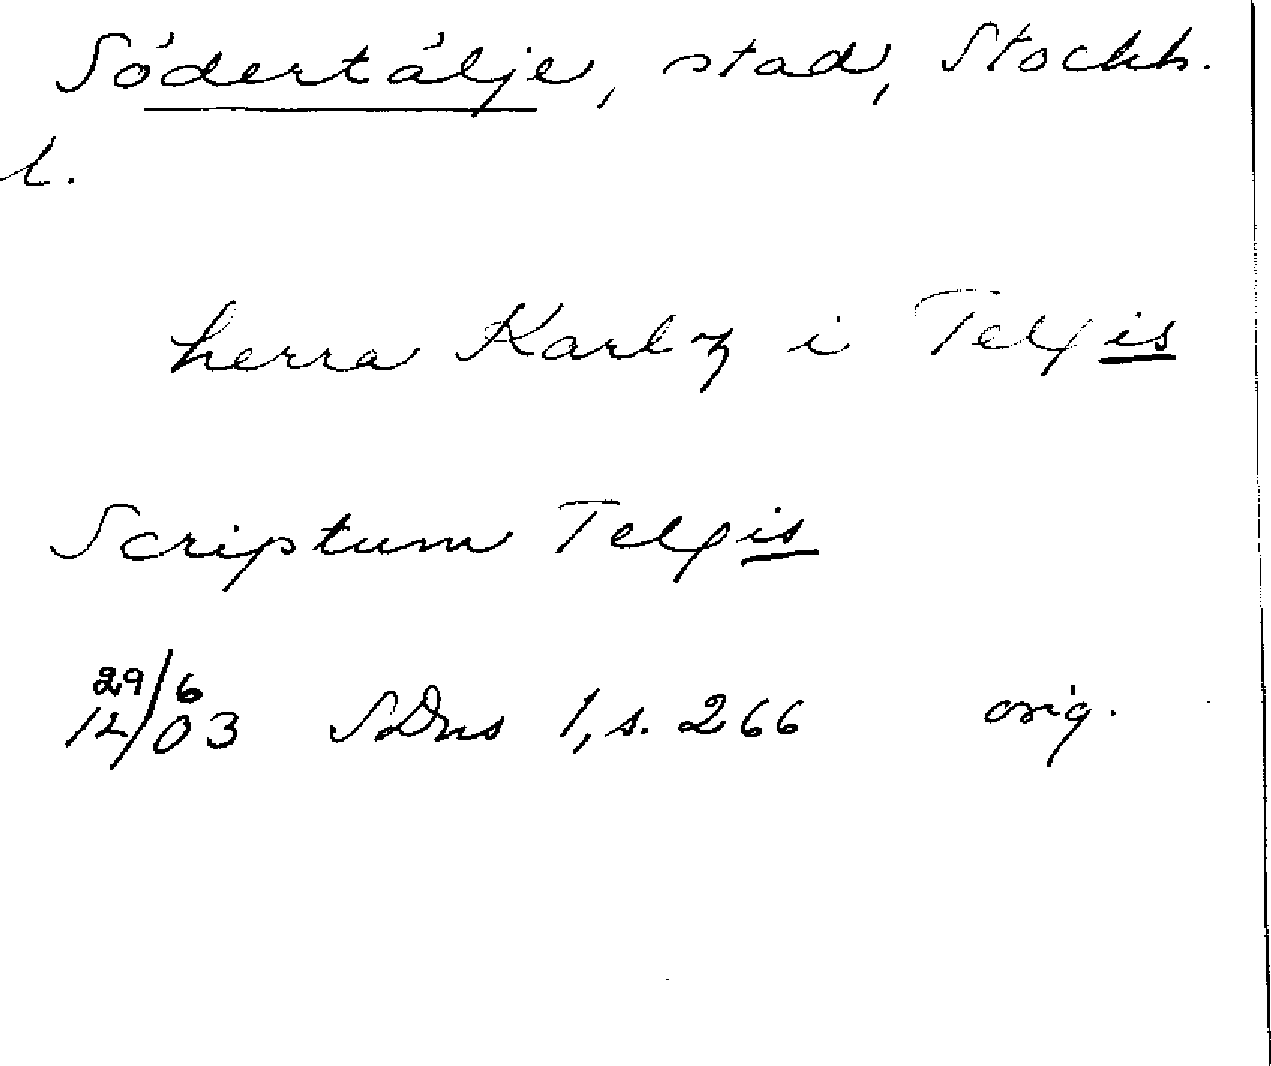 Södertälje, stad, Stockh.
l.
herra Karlz i Telgis
Scriptum Telgis
29/6
14/03 SDns 1, s. 266 orig.